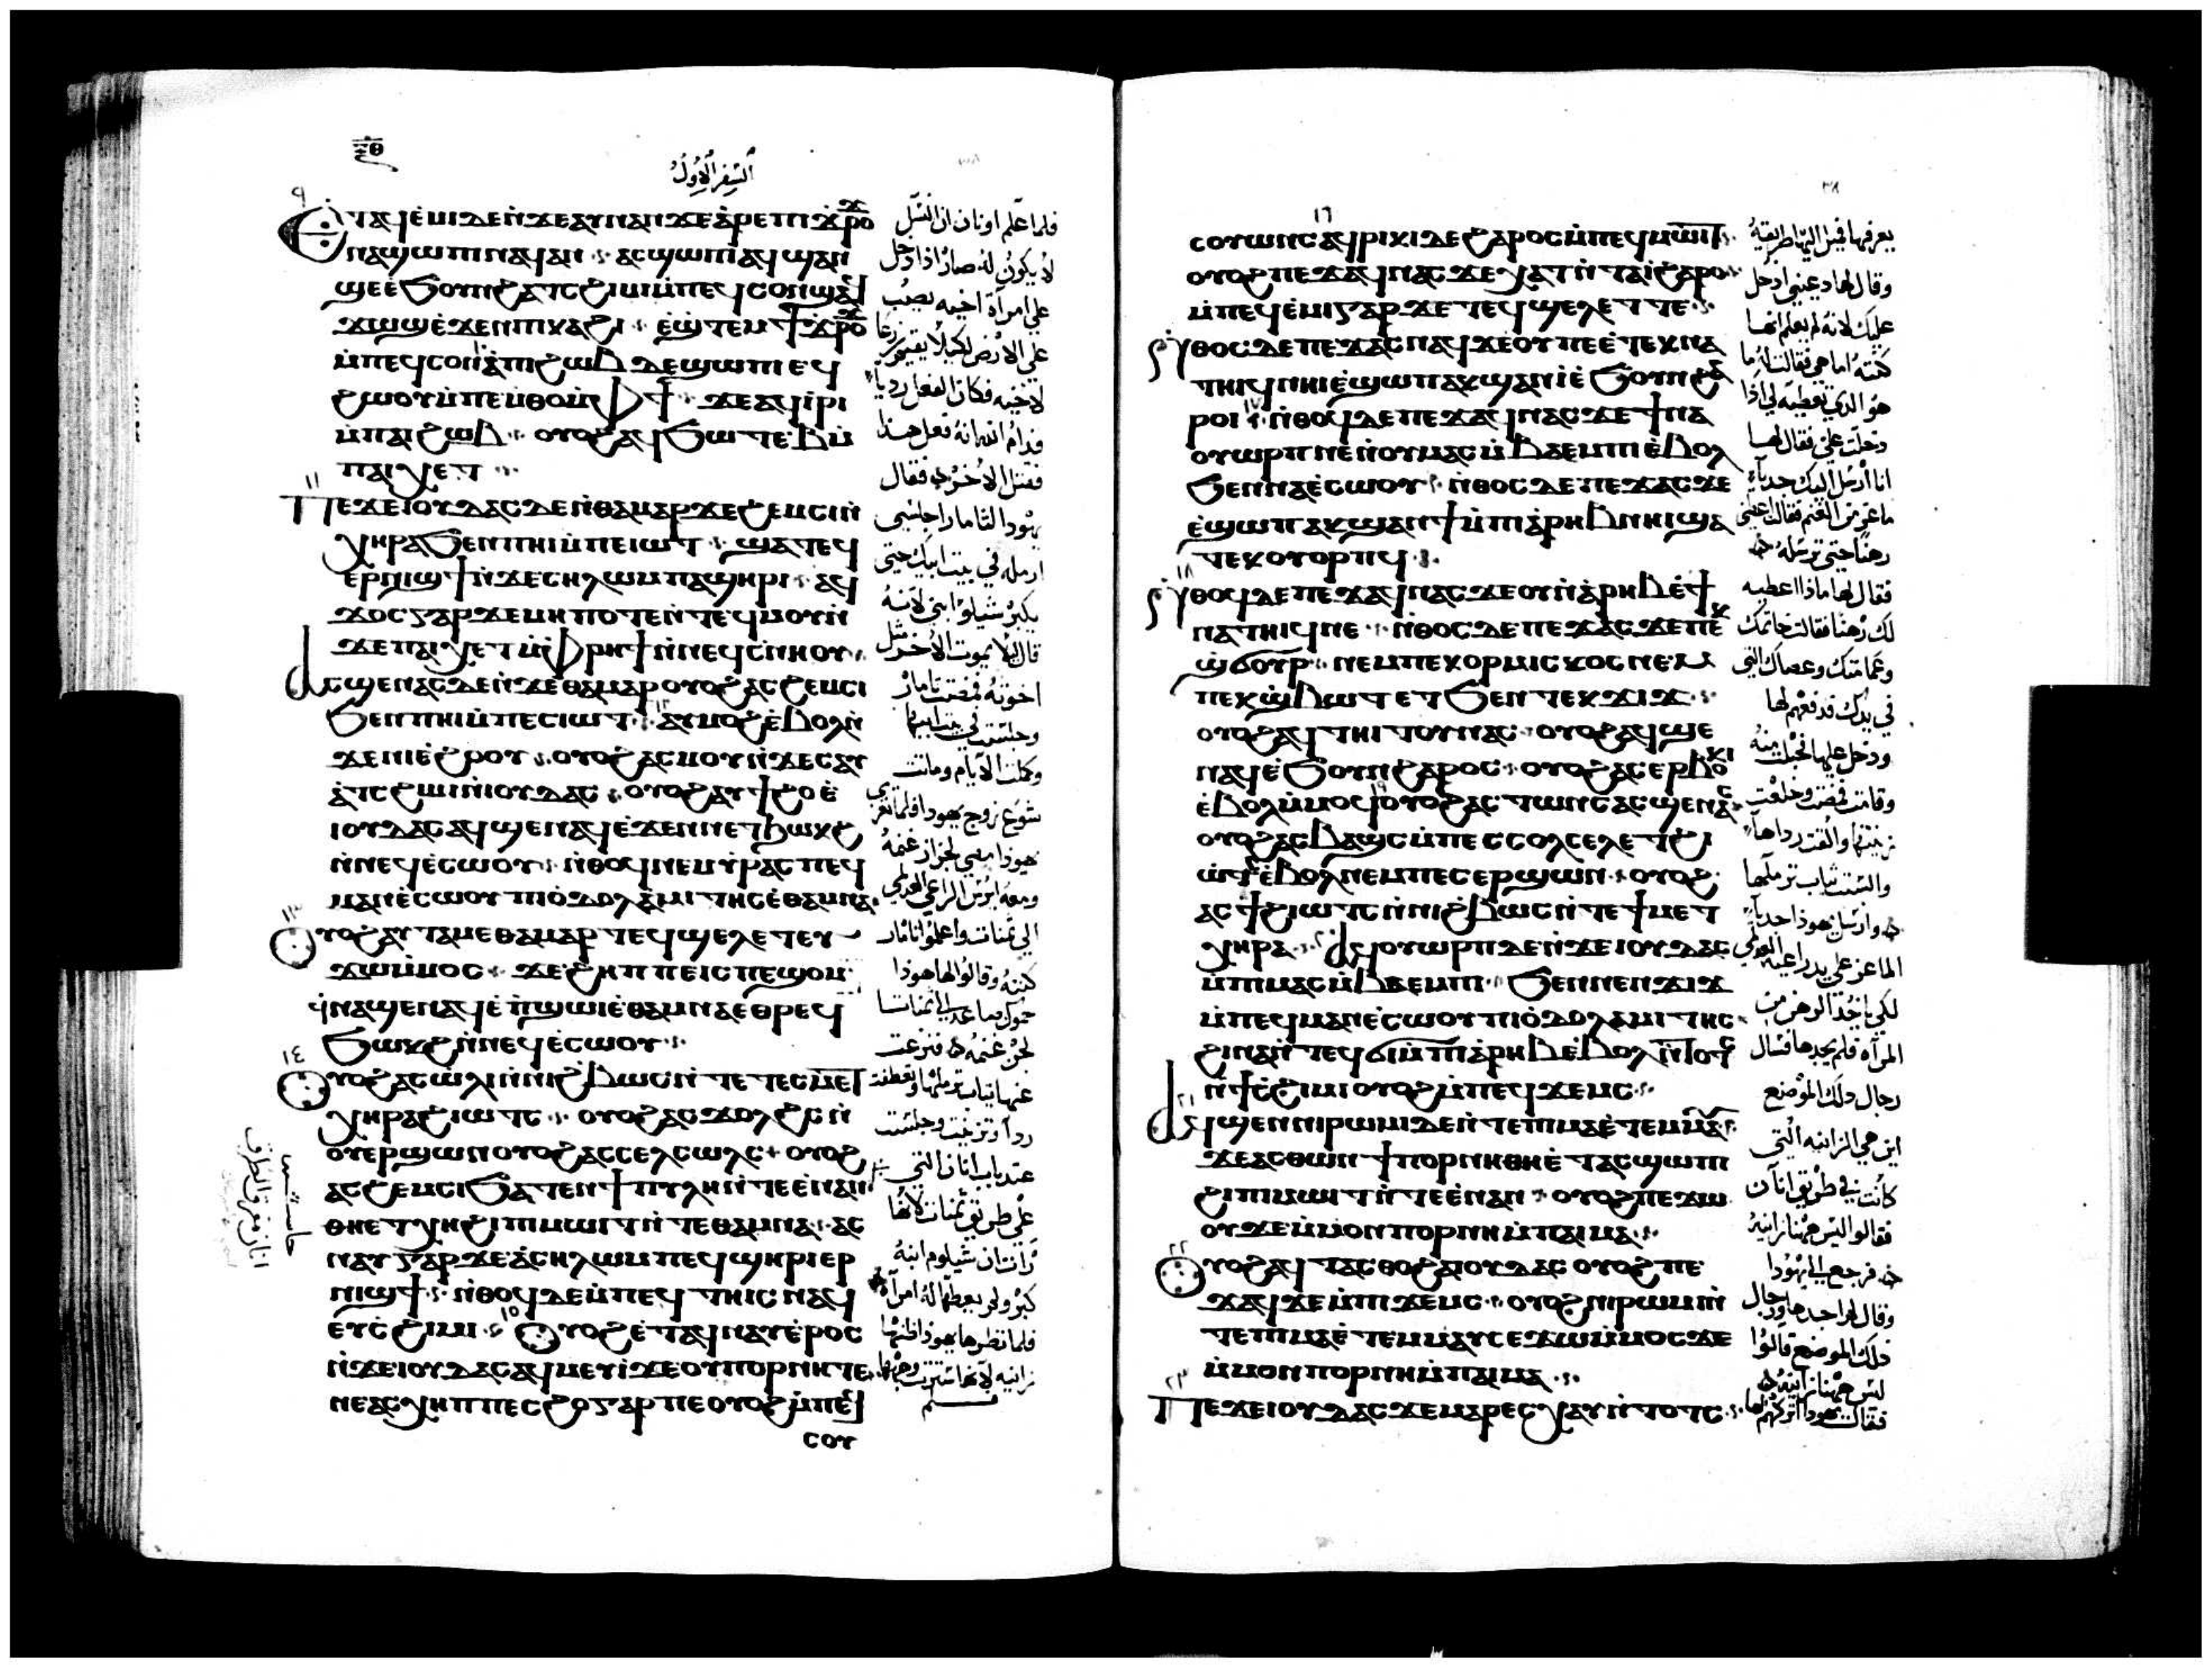 ⲝⲑ
السفر الاول
ⲉⲧⲁϥⲉⲙⲓ ⲇⲉ ⲛ̀ϫⲉ ⲁⲩⲛⲁⲛ ϫⲉ ⲁⲣⲉ ⲡⲓϫⲣⲟϫ
ⲛⲁϣⲱⲡⲓ ⲛⲁϥ ⲁⲛ ⲁⲥϣⲱⲡⲓ ⲁϥϣⲁⲛ
ϣⲉ ⲉ̀ϧⲟⲩⲛ ϩⲁ ⲧⲥϩⲓⲙⲓ ⲙ̀ⲡⲉϥⲥⲟⲛ ϣⲁϥ
ϫⲱϣ ⲉ̀ϫⲉⲛ ⲡⲓⲕⲁϩⲓ ⲉ̀ϣ̀ⲧⲉⲙϯ ϫⲣⲟϫ
ⲙ̀ⲡⲉϥⲥⲟⲛ ⲁ̀ ⲡⲓϩⲱⲃ ⲇⲉ ϣⲱⲡⲓ ⲉϥ
ϩⲱⲟⲩ ⲙ̀ⲡⲉⲙ̀ⲑⲟ ⲙ̀ⲫϯ ϫⲉ ⲁϥⲓⲣⲓ
ⲙ̀ⲡⲁⲓϩⲱⲃ ⲟⲩⲟϩ ⲁϥϧⲱⲧⲉⲃ ⲙ̀
ⲡⲁⲓⲭⲉⲧ
ⲡⲉϫⲉ ⲓⲟⲩⲇⲁⲥ ⲇⲉ ⲛ̀ⲑⲁⲙⲁⲣ ϫⲉ ϩⲉⲙⲥⲓ ⲛ̀
ⲭⲏⲣⲁ ϧⲉⲛ ⲡⲏⲓ ⲙ̀ⲡⲉⲓⲱⲧ ϣⲁⲧⲉϥ
ⲉⲣⲛⲓϣϯ ⲛ̀ϫⲉ ⲥⲏⲗⲱⲙ ⲡⲁϣⲏⲣⲓ ⲁϥ
ϫⲟⲥ ⲅⲁⲣ ϫⲉ ⲙⲏⲡⲟⲧⲉ ⲛ̀ⲧⲉϥⲙⲟⲩ ⲛ̀
ϫⲉ ⲡⲁⲓⲭⲉⲧ ⲙ̀ⲫⲣⲏϯ ⲛ̀ⲛⲉϥⲥⲛⲏⲟⲩ
ⲁⲥϣⲉⲛⲁⲥ ⲇⲉ ⲛ̀ϫⲉ ⲑⲁⲙⲁⲣ ⲟⲩⲟϩ ⲁⲥϩⲉⲙⲥⲓ
ϧⲉⲛ ⲡⲏⲓ ⲙ̀ⲡⲉⲥⲓⲱⲧ ⲁⲩⲙⲟϩ ⲉ̀ⲃⲟⲗ ⲛ̀
ϫⲉ ⲛⲓⲉ̀ϩⲟⲟⲩ ⲟⲩⲟϩ ⲁⲥⲙⲟⲩ ⲛ̀ϫⲉ ⲥⲁⲩ
ⲁ̀ ⲧⲥϩⲓⲙⲓ ⲛ̀ⲓⲟⲩⲇⲁⲥ ⲟⲩⲟϩ ⲁⲩϯϩⲟ ⲉ̀
ⲓⲟⲩⲇⲁⲥ ⲁϥϣⲉⲛⲁϥ ⲉ̀ϫⲉⲛ ⲛⲉⲧϧⲱⲕϩ
ⲛ̀ⲛⲉϥⲉ̀ⲥⲱⲟⲩ ⲛ̀ⲑⲟϥ ⲛⲉⲙ ⲩ̀ⲣⲁⲥ ⲡⲉϥ
ⲙⲁⲛⲉ̀ⲥⲱⲟⲩ ⲡⲓⲟ̀ⲇⲟⲗⲁⲙⲓⲧⲏⲥ ⲉ̀ⲑⲁⲙⲛⲁ
ⲟⲩⲟϩ ⲁⲩⲧⲁⲙⲉ ⲑⲁⲙⲁⲣ ⲧⲉϥϣⲉⲗⲉⲧ ⲉⲩ
ϫⲱ ⲙ̀ⲙⲟⲥ ϫⲉ ϩⲏⲡⲡⲉ ⲓⲥ ⲡⲉϣⲟⲙ
ϥ̀ⲛⲁϣⲉⲛⲁϥ ⲉ̀ⲡ̀ϣⲱⲓ ⲉ̀ⲑⲁⲙⲛⲁ ⲉⲑⲣⲉϥ
ϧⲱⲕϩ ⲛ̀ⲛⲉϥⲉ̀ⲥⲱⲟⲩ
ⲟⲩⲟϩ ⲁⲥⲱ̀ⲗⲓ ⲛ̀ⲛⲓϩⲃⲱⲥ ⲛ̀ⲧⲉ ⲧⲉⲥⲙⲉⲧ
ⲭⲏⲣⲁ ϩⲓⲱⲧⲥ ⲟⲩⲟϩ ⲁⲥϫⲟⲗϩⲥ ⲛ̀
ⲟⲩⲉⲣϣⲱⲛ ⲟⲩⲟϩ ⲁⲥⲥⲉⲗⲥⲱⲗⲥ ⲟⲩⲟϩ
ⲁⲥϩⲉⲙⲥⲓ ϧⲁⲧⲉⲛ ϯⲡⲩⲗⲏ ⲛ̀ⲧⲉ ⲉ̀ⲛⲁⲛ
ⲑⲏⲉⲧⲭⲏ ϩⲓ ⲡⲓⲙⲱⲓⲧ ⲛ̀ⲧⲉ ⲑⲁⲙⲛⲁ ⲁⲥ
ⲛⲁⲩ ⲅⲁⲣ ϫⲉ ⲁ̀ ⲥⲏⲗⲱⲙ ⲡⲉϥϣⲏⲣⲓ ⲉⲣ
ⲛⲓϣϯ ⲛ̀ⲑⲟϥ ⲇⲉ ⲙ̀ⲡⲉϥⲧⲏⲓⲥ ⲛⲁϥ
ⲉⲩⲥϩⲓⲙⲓ ⲟⲩⲟϩ ⲉ̀ⲧⲁϥⲛⲁⲩ ⲉ̀ⲣⲟⲥ
ⲛ̀ϫⲉ ⲓⲟⲩⲇⲁⲥ ⲁϥⲙⲉⲩⲓ̀ ϫⲉ ⲟⲩⲡⲟⲣⲛⲏ ⲧⲉ
ⲛⲉ ⲁⲥⲭⲏⲡ ⲡⲉⲥϩⲟ ⲅⲁⲣ ⲡⲉ ⲟⲩⲟϩ ⲙ̀ⲡⲉϥ
ⲥⲟⲩ
فلما علم اونان ان النسل
لا يكون له صار اذا دخل
على امرآة اخيه يصب
على الارض لكيلا يقيم زرعا
لاخيه فكان الفعل رديا
قدام الله انه فعل هذا
فقتل الاخر فقال
يهودا لثامار اجلسى
ارمله في بيت ابيك حتى
يكبر شيلوم ابنى لانه
قال ليلا يموت الاخر مثل
اخوته فمضت تامار
وجلست في بيت ابيها
وكملت الايام وماتت
شوع زوج يهودا فلما تعزى
يهودا مضى لجزاز غنمه
ومعه ايرس الراعي العدلمى
الى تمنات واعلموا تامار
كنته وقالوا لها هوذا
حموك صاعد الى تمناتا
لجز غنمه فنزعت
عنها ثياب ترملها وتغطت
رداً وتزينت وجلست
عند باب انان التي
على طريق تمنات لانها
رأت ان شيلوم ابنه
كبر ولم يعطها له امرآة
فلما نظرها يهوذا ظنها
زانيه لانها سترت وجهها
ⲥⲟⲩⲱⲛⲥ ⲁϥⲣⲓⲕⲓ ⲇⲉ ϩⲁⲣⲟⲥ ⲙ̀ⲡⲉϥⲙⲱⲓⲧ
ⲟⲩⲟϩ ⲡⲉϫⲁϥ ⲛⲁⲥ ϫⲉ ⲭⲁⲧ ⲛ̀ⲧⲁⲓ̀ ϩⲁⲣⲟ
ⲙ̀ⲡⲉϥⲉ̀ⲙⲓ ⲅⲁⲣ ϫⲉ ⲧⲉϥϣⲉⲗⲉⲧ ⲧⲉ
ⲛ̀ⲑⲟⲥ ⲇⲉ ⲡⲉϫⲁⲥ ⲛⲁϥ ϫⲉ ⲟⲩ ⲡⲉ ⲉ̀ⲧⲉⲕⲛⲁ
ⲧⲏⲓϥ ⲛⲏⲓ ⲉ̀ϣⲱⲡ ⲁⲕϣⲁⲛⲓ̀ ⲉ̀ϧⲟⲩⲛ ϩⲁ
ⲣⲟⲓ ⲛ̀ⲑⲟϥ ⲇⲉ ⲡⲉϫⲁϥ ⲛⲁⲥ ϫⲉ ϯⲛⲁ
ⲟⲩⲱⲣⲡ ⲛⲉ ⲛ̀ⲟⲩⲙⲁⲥ ⲙ̀ⲃⲁⲉⲙⲡⲓ ⲉ̀ⲃⲟⲗ
ϧⲉⲛ ⲛⲁⲉ̀ⲥⲱⲟⲩ ⲛ̀ⲑⲟⲥ ⲇⲉ ⲡⲉϫⲁⲥ ϫⲉ
ⲉ̀ϣⲱⲡ ⲁⲕϣⲁⲛϯ ⲙ̀ⲡⲓⲁ̀ⲣⲏⲃ ⲛⲏⲓ ϣⲁ
ⲧⲉⲕⲟⲩⲟⲣⲡϥ
ⲛ̀ⲑⲟϥ ⲇⲉ ⲡⲉϫⲁϥ ⲛⲁⲥ ϫⲉ ⲟⲩ ⲛ̀ⲁⲣⲏⲃ ⲉ̀ϯ
ⲛⲁⲧⲏⲓϥ ⲛⲉ ⲛ̀ⲑⲟⲥ ⲇⲉ ⲡⲉϫⲁⲥ ϫⲉ ⲡⲉⲕ
ϣ̀ϭⲟⲩⲣ ⲛⲉⲙ ⲡⲉⲕⲟⲣⲙⲓⲥⲕⲟⲥ ⲛⲉⲙ
ⲡⲉⲕϣ̀ⲃⲱⲧ ⲉⲧϧⲉⲛ ⲧⲉⲕϫⲓϫ
ⲟⲩⲟϩ ⲁϥⲧⲏⲓⲧⲟⲩ ⲛⲁⲥ ⲟⲩⲟϩ ⲁϥϣⲉ
ⲛⲁϥ ⲉ̀ϧⲟⲩⲛ ϩⲁⲣⲟⲥ ⲟⲩⲟϩ ⲁⲥⲉⲣⲃⲟⲕⲓ
ⲉ̀ⲃⲟⲗ ⲙ̀ⲙⲟϥ ⲟⲩⲟϩ ⲁⲥⲧⲱⲛⲥ ⲁⲥϣⲉⲛⲁⲥ
ⲟⲩⲟϩ ⲁⲥⲃⲁϣⲥ ⲙ̀ⲡⲉⲥⲥⲟⲗⲥⲉⲗ ⲉⲧϩⲓ
ⲱⲧⲥ ⲉ̀ⲃⲟⲗ ⲛⲉⲙ ⲡⲉⲥⲉⲣϣⲱⲛ ⲟⲩⲟϩ
ⲁⲥϯ ϩⲓⲱⲧⲥ ⲛ̀ⲛⲓϩ̀ⲃⲱⲥ ⲛ̀ⲧⲉ ϯⲙⲉⲧ
ⲭⲏⲣⲁ ⲁϥⲟⲩⲱⲣⲡ ⲇⲉ ⲛ̀ϫⲉ ⲓⲟⲩⲇⲁⲥ
ⲙ̀ⲡⲓⲙⲁⲥ ⲙ̀ⲃⲁⲉⲙⲡⲓ ϧⲉⲛ ⲛⲉⲛϫⲓϫ
ⲙ̀ⲡⲉϥⲙⲁⲛⲉ̀ⲥⲱⲟⲩ ⲡⲓⲟ̀ⲇⲟⲗⲁⲙⲓⲧⲏⲥ
ϩⲓⲛⲁ ⲛ̀ⲧⲉϥϭⲓ ⲙ̀ⲡⲓⲁ̀ⲣⲏⲃ ⲉ̀ⲃⲟⲗ ⲛ̀ⲧⲟⲧⲥ
ⲛ̀ϯⲥ̀ϩⲓⲙⲓ ⲟⲩⲟϩ ⲙ̀ⲡⲉϥϫⲉⲙⲥ
ⲁϥϣⲉⲛ ⲛⲓⲣⲱⲙⲓ ⲇⲉ ⲛ̀ⲧⲉ ⲡⲓⲙⲁ ⲉ̀ⲧⲉⲙⲙⲁⲩ
ϫⲉ ⲁⲥⲑⲱⲛ ϯⲡⲟⲣⲛⲏ ⲑⲏ ⲉ̀ⲧⲁⲥϣⲱⲡⲓ
ϩⲓ ⲡⲓⲙⲱⲓⲧ ⲛ̀ⲧⲉ ⲉ̀ⲛⲁⲛ ⲟⲩⲟϩ ⲡⲉϫⲱ
ⲟⲩ ϫⲉ ⲙ̀ⲙⲟⲛ ⲡⲟⲣⲛⲏ ⲙ̀ⲡⲁⲓⲙⲁ
ⲟⲩⲟϩ ⲁϥⲧⲁⲥⲑⲟ ϩⲁ ⲓⲟⲩⲇⲁⲥ ⲟⲩⲟϩ ⲡⲉ
ϫⲁϥ ϫⲉ ⲙ̀ⲡⲓϫⲉⲙⲥ ⲟⲩⲟϩ ⲛⲓⲣⲱⲙⲓ ⲛ̀
ⲧⲉ ⲡⲓⲙⲁ ⲉ̀ⲧⲉⲙⲙⲁⲩ ⲥⲉϫⲱ ⲙ̀ⲙⲟⲥ ϫⲉ
ⲙ̀ⲙⲟⲛ ⲡⲟⲣⲛⲏ ⲙ̀ⲡⲁⲓⲙⲁ
ⲡⲉϫⲉ ⲓⲟⲩⲇⲁⲥ ϫⲉ ⲙⲁⲣⲉⲥⲭⲁⲩ ⲛ̀ⲧⲟⲧⲥ
يعرفها فميل اليها طريقه
وقال لها دعينى ادخل
عليك لانه لم يعلم انها
كنته اما هى فقالت له ما
هو الذي تعطيه لي اذا
دخلت على فقال لها
انا ارسل اليك جدياً
ماعز من الغنم فقالت اعطينى
رهنا حتى ترسله
فقال لها ماذا اعطيه
لك رهنا فقالت خاتمك
وعمامتك وعصاك التي
في يدك فدفعهم لها
ودخل عليها فحبلت منه
وقامت فمضت وخلعت
زينتها والقت رداها
والبست ثياب ترملها
وارسل يهوذا جدياً
الماعز على يد راعيه العدلمى
لكى ياخذ الرهن من
المرآه فلم يجدها فسال
رجال ذلك الموضع
اين هي الزانيه التي
كانت في طريق انان
فقالوا ليس ههنا زانيه
فرجع الى يهودا
وقال لم اجدها ورجال
ذلك الموضع قالوا
ليس ههنا زانيه
فقال يهودا اتركهم لها